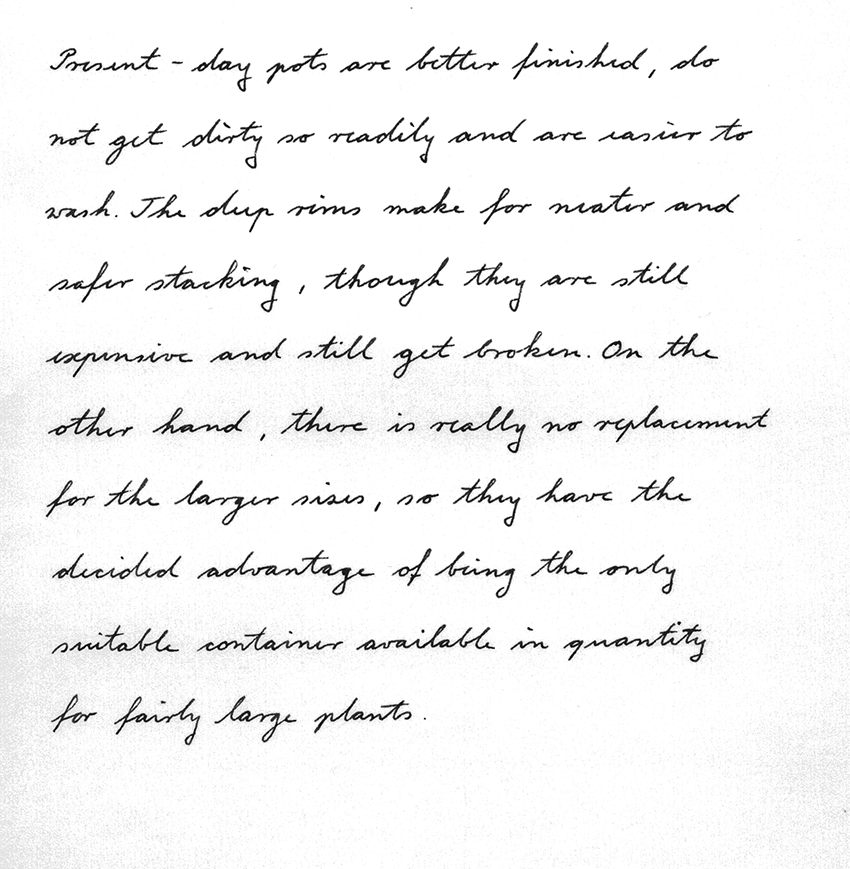 Present-day pots are better finished, do
not get dirty so readily and are easier to
wash. The deep rims make for neater and
safer stacking, though they are still
expensive and still get broken. On the
other hand, there is really no replacement
for the larger sises, so they have the
decided advantage of being the only
suitable container available in quantity
for fairly large plants.